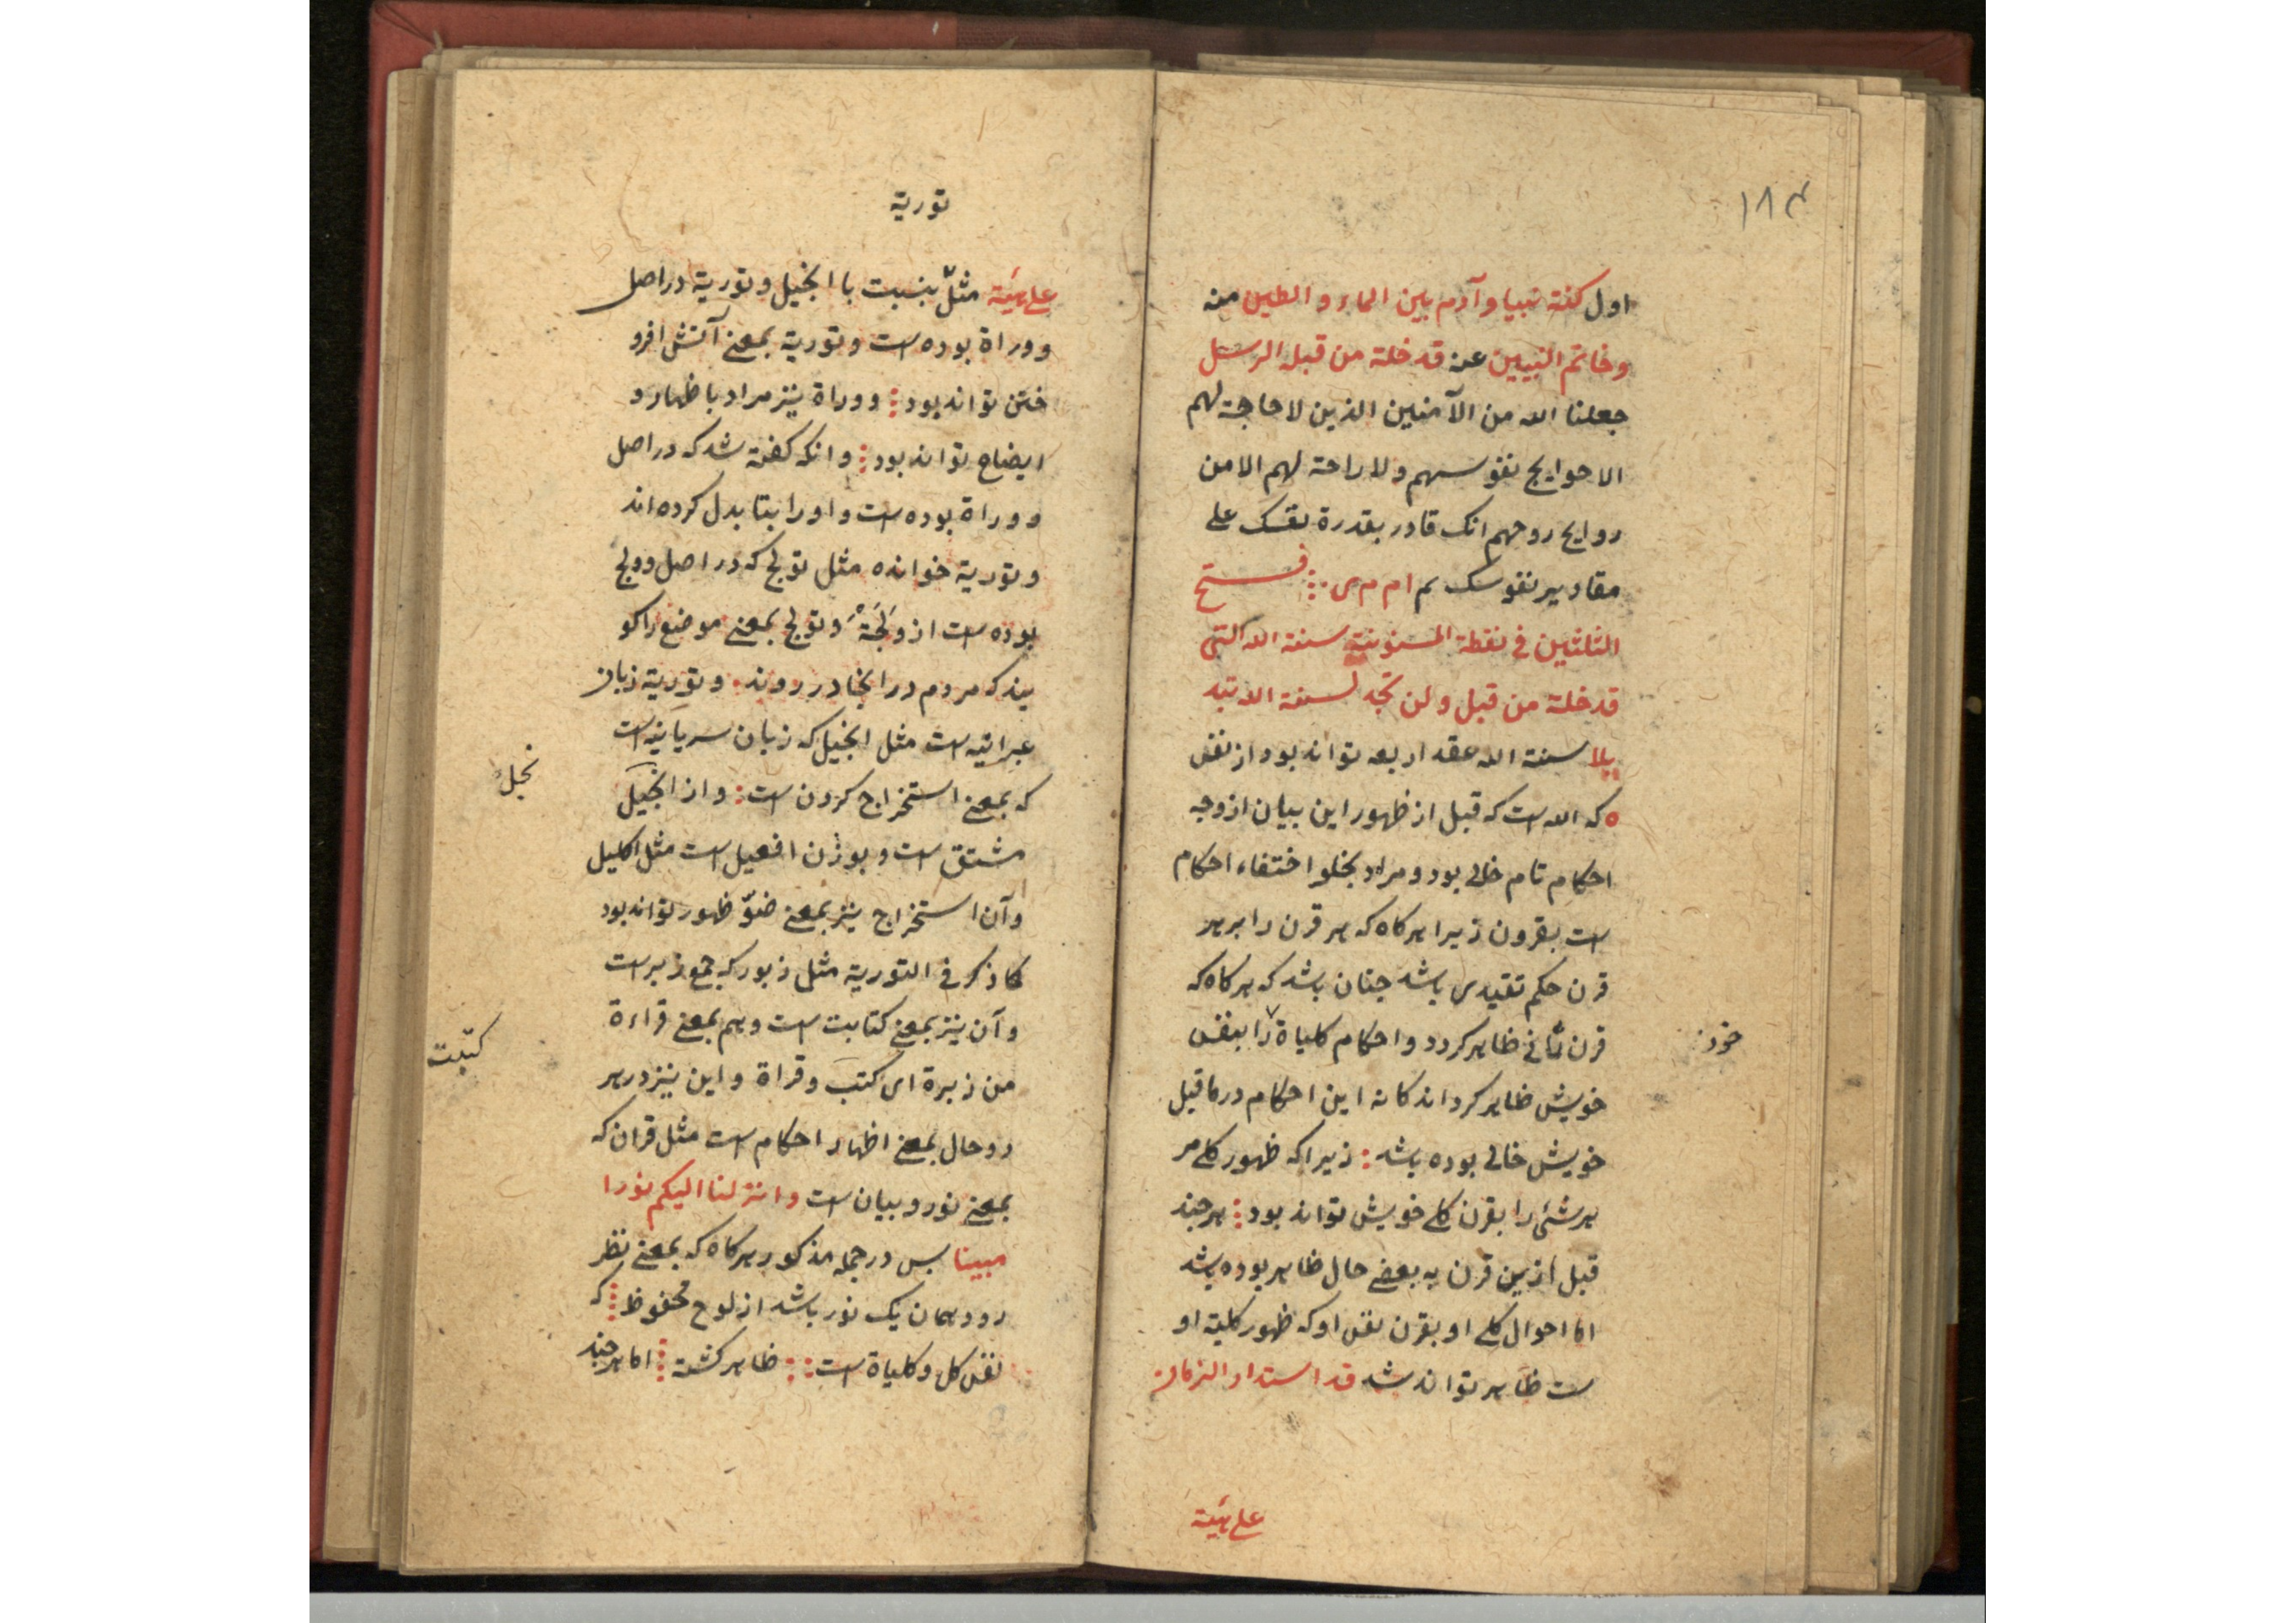 ۱۸۴
اول کنة نبیا و آدم بین الماء و الطین منه
و خاتم النبیین عن قد خلة من قبله الرسل
جعلنا الله من الآمنین الذین لا حاجة لهم
الا حوایج نفوسهم ولا راحة لهم الا من
روایح روحهم انک قادر بقدرة نفسک علی
مقادیر نفوسک م ام م ی فتح
الثلثین فی نقطة المسنونة سنة الله التی
قد خلة من قبل و لن تجد لسنة الله تبد
یلا سنة الله عقد اربعه تواند بود از نفس
ه که الله است که قبل از ظهور این بیان از وجه
احکام تام خالی بود و مراد بخلو اختفاء احکام
است بقرون زیرا هرکاه که هر قرن را بر هر
قرن حکم تقیدی باشد جنان باشد که هرکاه که
قرن ثانی ظاهر کردد و احکام کلیاة را بنفس
خود
خویش ظاهر کرداند کانه این احکام در ما قبل
خویش خالی بوده باشد زیرا که ظهور کلی مر
هر شئی را بقرن کلی خویش تواند بود هر جند
قبل ازین قرن به بعضی حال ظاهر بوده باشد
اما احوال کلی او بقرن نفس او که ظهور کلیة او
ست ظاهر تواند شد قد استدار الزمان
علی هیئة
توریة
علی هیئة مثل بنسبت با انجیل و توریة در اصل
و وراة بوده است و توریة بمعنی آتش افرو
ختن تواند بود و وراة نیز مراد باظهار و
ایضاح تواند بود و انکه کفته شد که در اصل
و وراة بوده است و او را بتا بدل کرده اند
و توریة خوانده مثل تولج که در اصل وولج
بوده است از ولجة و تولج بمعنی موضع را کو
یند که مردم در انجا در روند و توریة زبان
عبرانیه است مثل انجیل که زبان سریانیه است
که بمعنی استخراج کردن است و از انجیل
نجل
مشتق است و بوزن افعیل است مثل اکلیل
و آن استخراج نیز بمعنی ضوّ ظهور تواند بود
کما ذکر فی التوریة مثل زبور که جمع زبر است
و آن نیز بمعنی کتابت است و هم بمعنی قراءة
کتبت
من زبرة ای کتب و قراة و این نیز در هر
دو حال بمعنی اظهار احکام است مثل قران که
بمعنی نور و بیان است و انزلنا الیکم نورا
مبینا بس در جمله مذکور هرکاه که بمعنی نظر
رود همان یک نور باشد از لوح محفوظ که
نفس کل و کلیاة است ظاهر کشته اما هر جند